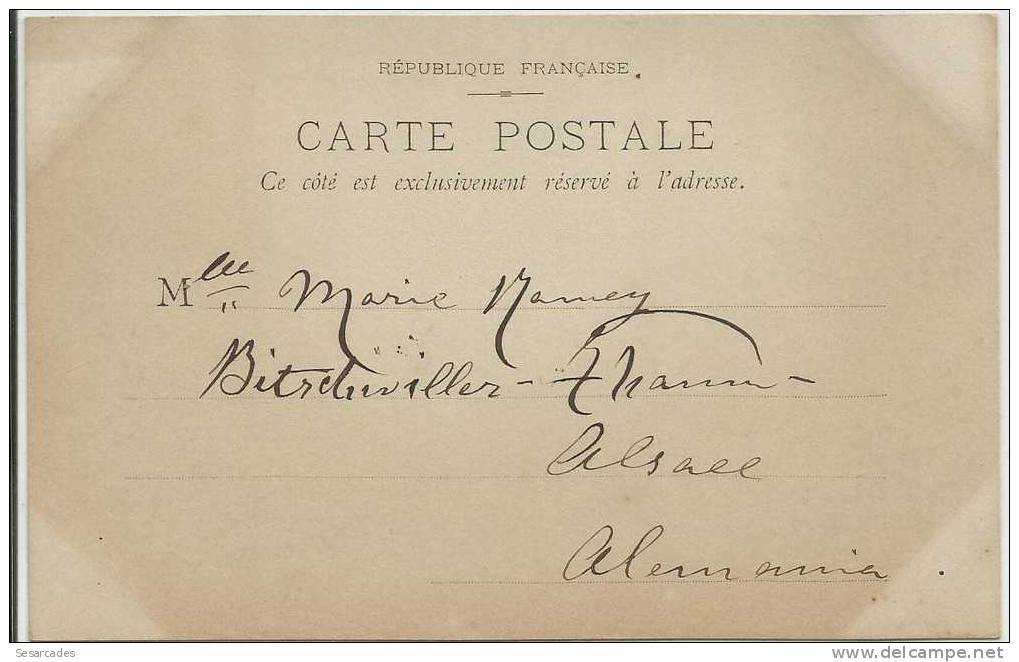 RÉPUBLIQUE FRANÇAISE
CARTE POSTALE
Ce côté est exclusivement réservé à l'adresse.
Mlle Marie Ramey
Bitschwiller - Thann -
Alsace
Alemania
Sesarcades
delcampe.net